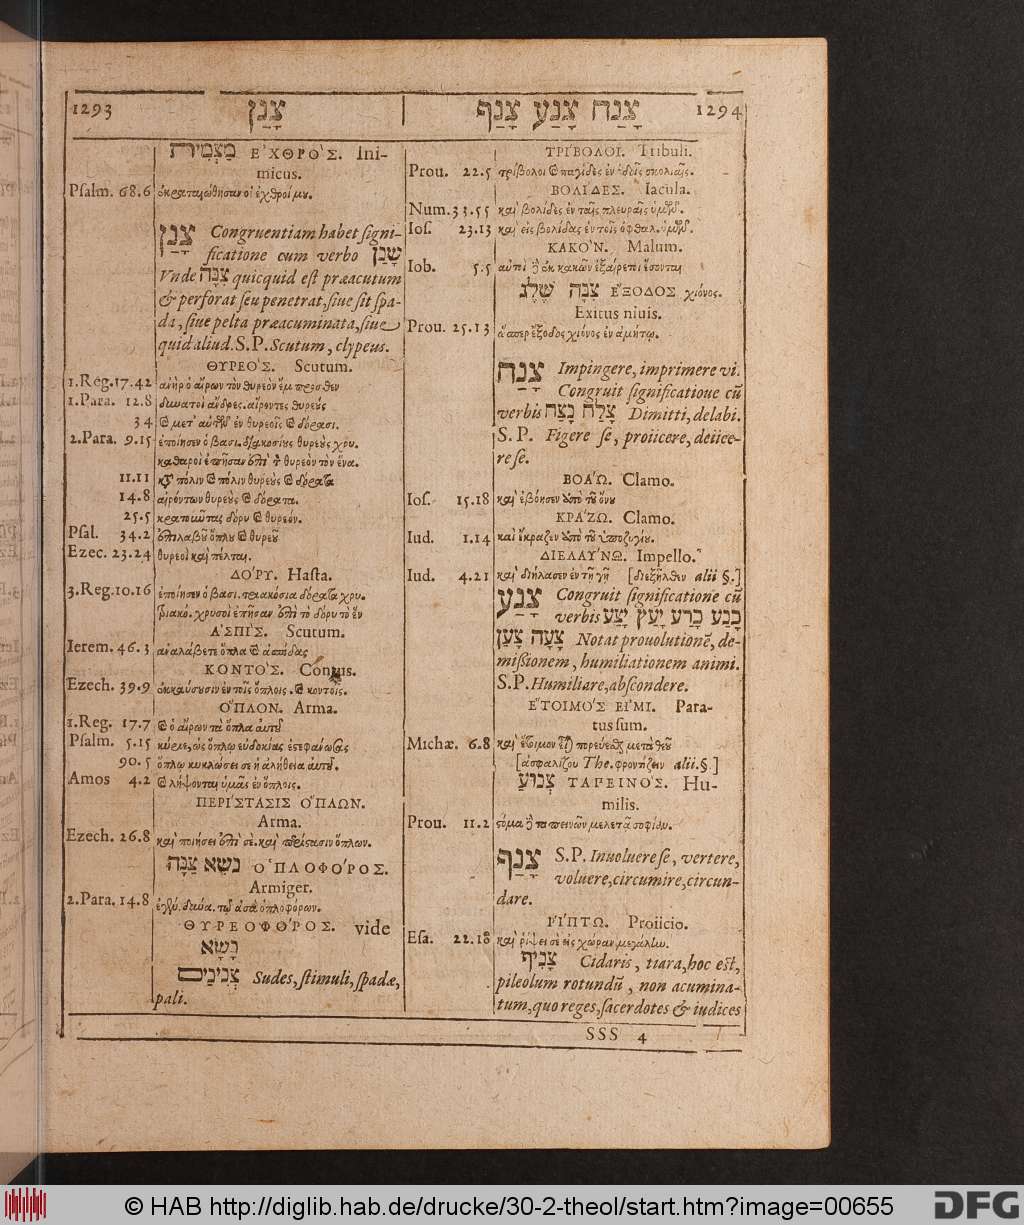 1293 צָנַן
צָנַח צָנַע צָנַף 1294
מַצְמִית ΕʼΧΘΡΟʹΣ. Ini-
micus.
Psalm. 68.6 ἐκραταιώθησαν οἱ ἐχθροί μου.
צָנַן Congruentiam habet signi-
ficatione cum verbo שָׁנַן
Vnde צִנָּה quicquid est præacutum
& perforat seu penetrat, siue sit spa-
da, siue pelta præacuminata, siue
quid aliud. S.P. Scutum, clypeus.
ΘΥΡΕΟʹΣ. Scutum.
1.Reg.17.42 ἀνὴρ ὁ αἴρων τὸν θυρεὸν ἔμπροσθεν
1.Para. 12.8 δυνατοὶ ἄνδρες. αἴροντες θυρεοὺς
34 καὶ μετ' αὐτῶν ἐν θυρεοῖς καὶ δόρασι.
2.Para. 9.15 ἐποίησεν ὁ βασι. διακοσίους θυρεοὺς χρυ.
καθαροὶ ἐπῆσαν ἐπὶ τὸν θυρεὸν τὸν ἕνα.
11.11 κατὰ πόλιν καὶ πόλιν θυρεοὺς καὶ δόρατα
14.8 αἰρόντων θυρεοὺς καὶ δόρατα.
25.5 κρατοῦντας δόρυ καὶ θυρεόν.
Psal. 34.2 ἐπιλαβοῦ ὅπλου καὶ θυρεοῦ
Ezec. 23.24 θυρεοὶ καὶ πέλται.
ΔΟʹΡΥ. Hasta.
3.Reg.10.16 ἐποίησεν ὁ βασι. τριακόσια δόρατα χρυ.
τριακό. χρυσοῖ ἐπῆσαν ἐπὶ τὸ δόρυ τὸ ἓν
ΑʼΣΠΙʹΣ. Scutum.
Ierem. 46.3 ἀναλάβετε ὅπλα καὶ ἀσπίδας
ΚΟΝΤΟʹΣ. Contus.
Ezech. 39.9 ἐκκαύσουσιν ἐν τοῖς ὅπλοις. καὶ κοντοῖς.
ὍΠΛΟΝ. Arma.
1.Reg. 17.7 καὶ ὁ αἴρων τὰ ὅπλα αὐτοῦ
Psalm. 5.15 κύριε, ὡς ὅπλῳ εὐδοκίας ἐστεφάνωσας
90.5 ὅπλῳ κυκλώσει σε ἡ ἀλήθεια αὐτοῦ.
Amos 4.2 καὶ λήψονται ὑμᾶς ἐν ὅπλοις.
ΠΕΡΙʹΣΤΑΣΙΣ ΟʹΠΛΩΝ.
Arma.
Ezech. 26.8 καὶ ποιήσει ἐπὶ σὲ. καὶ περίστασιν ὅπλων.
נֹשֵׂא צִנָּה ὉΠΛΟΦΟʹΡΟΣ.
Armiger.
2.Para. 14.8
ΘΥΡΕΟΦΟʹΡΟΣ. vide
נָשָׂא
צְנִינִים Sudes, stimuli, spadæ,
pali.
ΤΡΙʹΒΟΛΟΙ. Tribuli.
Prou. 22.5 τρίβολοι καὶ παγίδες ἐν ὁδοῖς σκολιαῖς.
ΒΟΛΙʹΔΕΣ. Iacula.
Num.33.55 καὶ βολίδες ἐν ταῖς πλευραῖς ὑμῶν.
Ios. 23.13 καὶ εἰς βολίδας ἐν τοῖς ὀφθαλ. ὑμῶν.
ΚΑΚΟʹΝ. Malum.
Iob. 5.5 αὐτοὶ δὲ ἐκ κακῶν ἐξαίρετοι ἔσονται
צִנָּה שֶׁלֶג ἜΞΟΔΟΣ χιόνος.
Exitus niuis.
Prou. 25.13 ὥσπερ ἔξοδος χιόνος ἐν ἀμήτῳ.
צָנַח Impingere, imprimere vi.
Congruit significatione cũ
verbis צָלַח נָצַח Dimitti, delabi.
S.P. Figere se, proiicere, deiice-
re se.
ΒΟΑʹΩ. Clamo.
Ios. 15.18 καὶ ἐβόησεν ἀπὸ τοῦ ὄνου
ΚΡΑʹΖΩ. Clamo.
Iud. 1.14 καὶ ἔκραζεν ἀπὸ τοῦ ὑποζυγίου.
ΔΙΕΛΑΥʹΝΩ. Impello.
Iud. 4.21 καὶ διήλασεν ἐν τῇ γῇ [διεξῆλθεν alii §.]
צָנַע Congruit significatione cũ
verbis כָּנַע כָּרַע יָעַץ יָצַע
צָעָה צָעַן Notat prouolutionẽ, de-
missionem, humiliationem animi.
S.P. Humiliare, abscondere.
ἝΤΟΙΜΟΣ ΕΙʼΜΙ. Para-
tus sum.
Michæ. 6.8 καὶ ἕτοιμον εἶναι πορεύεσθαι μετὰ θεοῦ
[ἀσφαλίζου The. φροντίζειν alii. §.]
צְנוּעַ ΤΑΠΕΙΝΟʹΣ. Hu-
milis.
Prou. 11.2 στόμα δὲ ταπεινῶν μελετᾷ σοφίαν.
צָנַף S.P. Inuoluere se, vertere,
voluere, circumire, circun-
dare.
ῬΙʹΠΤΩ. Proiicio.
Esa. 22.18 καὶ ῥίψει σε εἰς χώραν μεγάλην.
צָנִיף Cidaris, tiara, hoc est,
pileolum rotundũ, non acumina-
tum, quo reges, sacerdotes & iudices
SSS 4
© HAB http://diglib.hab.de/drucke/30-2-theol/start.htm?image=00655
DFG